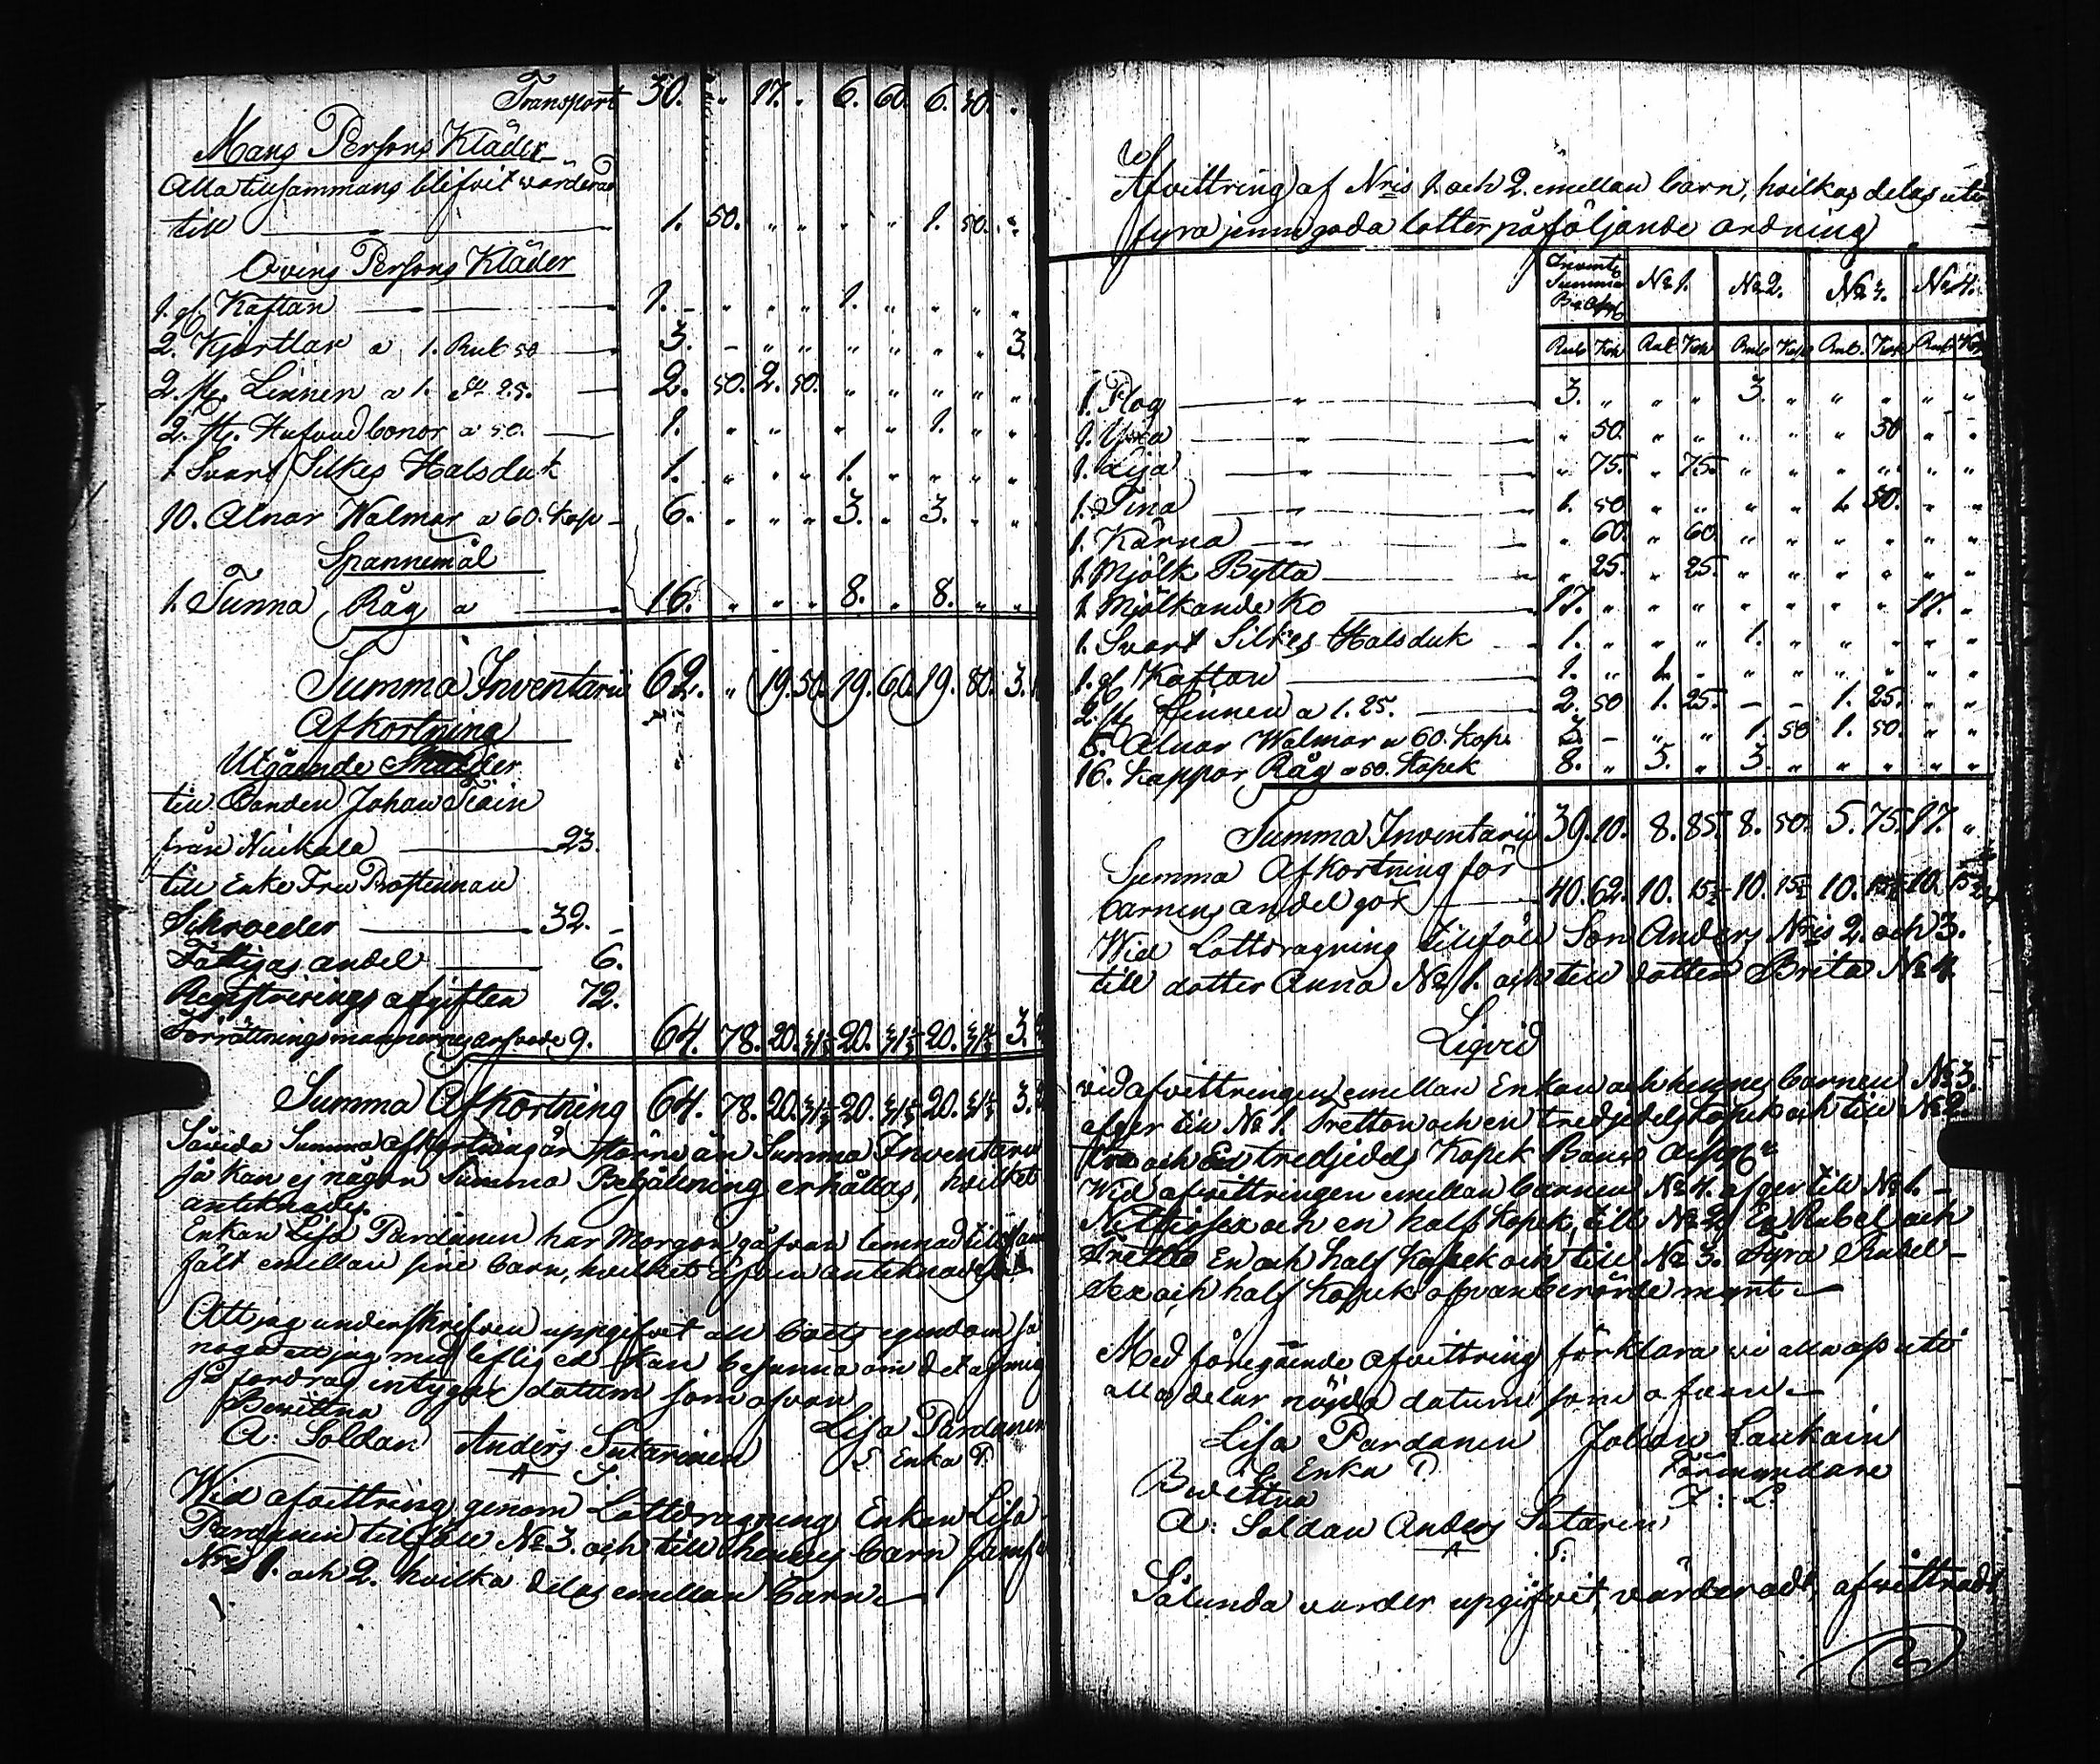 Transport 30. " 17. " 6. 60. 6. 30. "
Mans Persons Kläder
Alla tillsammans blifvit värderade
till 1. 50. " " " " 1. 50. "
Qvins Persons Kläder
1. gl Kaftan 1. - " " 1. " " " "
2. Kjortlar a 1. Rub 50 3. - " " " " " " 3.
2. st. Linnen a 1. do 25. 2. 50. 2. 50. " " " " "
2. st. Hufvudbonor a 50. 1. " " " " " 1. " "
1 Svart Silkes Halsduk 1. " " " 1. " " " "
10. Alnar Walmar a 60. Kop 6. " " " 3. " 3. " "
Spannemål
1. Tunna Råg a 16. " " " 8. " 8. " "
Summa Inventarii 62. " 19. 50. 19. 60. 19. 80. 3.
Afkortning
Utgående Skulder
till Bonden Johan
från 23.
till Enke Fru
Schroeder 32. -
Fattigas andel 6.
Registrerings afgiften 72.
Förrättningsmännernes arfvode 9. 64. 78. 20. 20. 20. 3.
Summa Afkortning 64. 78. 20. 20. 20. 3.
Såvida Summa afkortning är större än Summa Inventarii
så kan ej någon Summa Behållning erhållas, hvilket
antecknades.
Enkan Lisa Pardanen har Morgongåfvan lemnad till
fält emellan sine barn, hvilket äfven antecknades
Att jag underskrifven uppgifvit all boets egendom så
noga att jag med liflig ed kan besanna om det af mig
så fordras, intygar datum som ofvan
Lisa Pardanen
Enka
Bevittna
A: Soldan Anders Sutarinen
A S.
Wid afvittring genom Lottdragning Enkan Lisa
Pardanen tillföll No 3. och till hennes barn
Nris 1. och 2. hvilka delas emellan barn
Afvittring af Nris 1. och 2. emellan barn, hvilkas delas uti
fyra jemngoda lotter på följande ordning
Summa No 1. No 2. No 3. No 4.
Rub Kop Rub Kop Rub Kop Rub. Kop Rub Kop
1. Plog 3. " " " 3. " " " " "
1. Yxa " 50. " " " " " 50 " "
1. Lija " 75. " 75. " " " " " "
1. Tina 1. 50. " " " " 1. 50. " "
1. Kärna " 60. " 60. " " " " " "
1. Mjölk Bytta " 25. " 25. " " " " " "
1. Mjölkande Ko 17. " " " " " " " 17. "
1. Svart Silkes Halsduk 1. " " " 1. " " " " "
1. gl Kaftan 1. " 1. " " " " " " "
2. st Linnen a 1. 25. 2. 50 1. 25. - - 1. 25. " "
5. Alnar Walmar a 60. Kop. 3. - " " 1. 50 1. 50. " "
16. Kappor Råg a 50. Kopek 8. " 5. " 3. " " " " "
Summa Inventarii 39. 10. 8. 85. 8. 50. 5. 75. 17. "
Summa Afkortning för
barnens andel gör 40. 62. 10. 15½ 10. 15½ 10. 15½ 10. 15½
Wid Lottdragning tillföll Son Anders Nris 2. och 3.
till dotter Anna No 1. och till dotter Brita No 4.
Liqvid
vid afvittringen emellan Enkan och hennes barnen No 3.
afger till No 1. Tretton och en tredjedels Kopek och till No 2.
Tre och En tredjedels Kopek Banco
Wid afvittringen emellan barnen No 4. afger till No 1.
Nittiosex och en half Kopek, till No 2. En Rubel och
Trettio En och half Kopek och till No 3. Fyra Rubel
Sex och half Kopek ofvanberörde mynt
Med föregående afvittring förklara vi alla oss uti
alla delar nöjda datum som ofvan
Lisa Pardanen Johan Laukain
Enka Förmyndare
Bevittna
A: Soldan Anders Sutarin
A S:
Sålunda vorder uppgifvit, värderadt, afvittradt